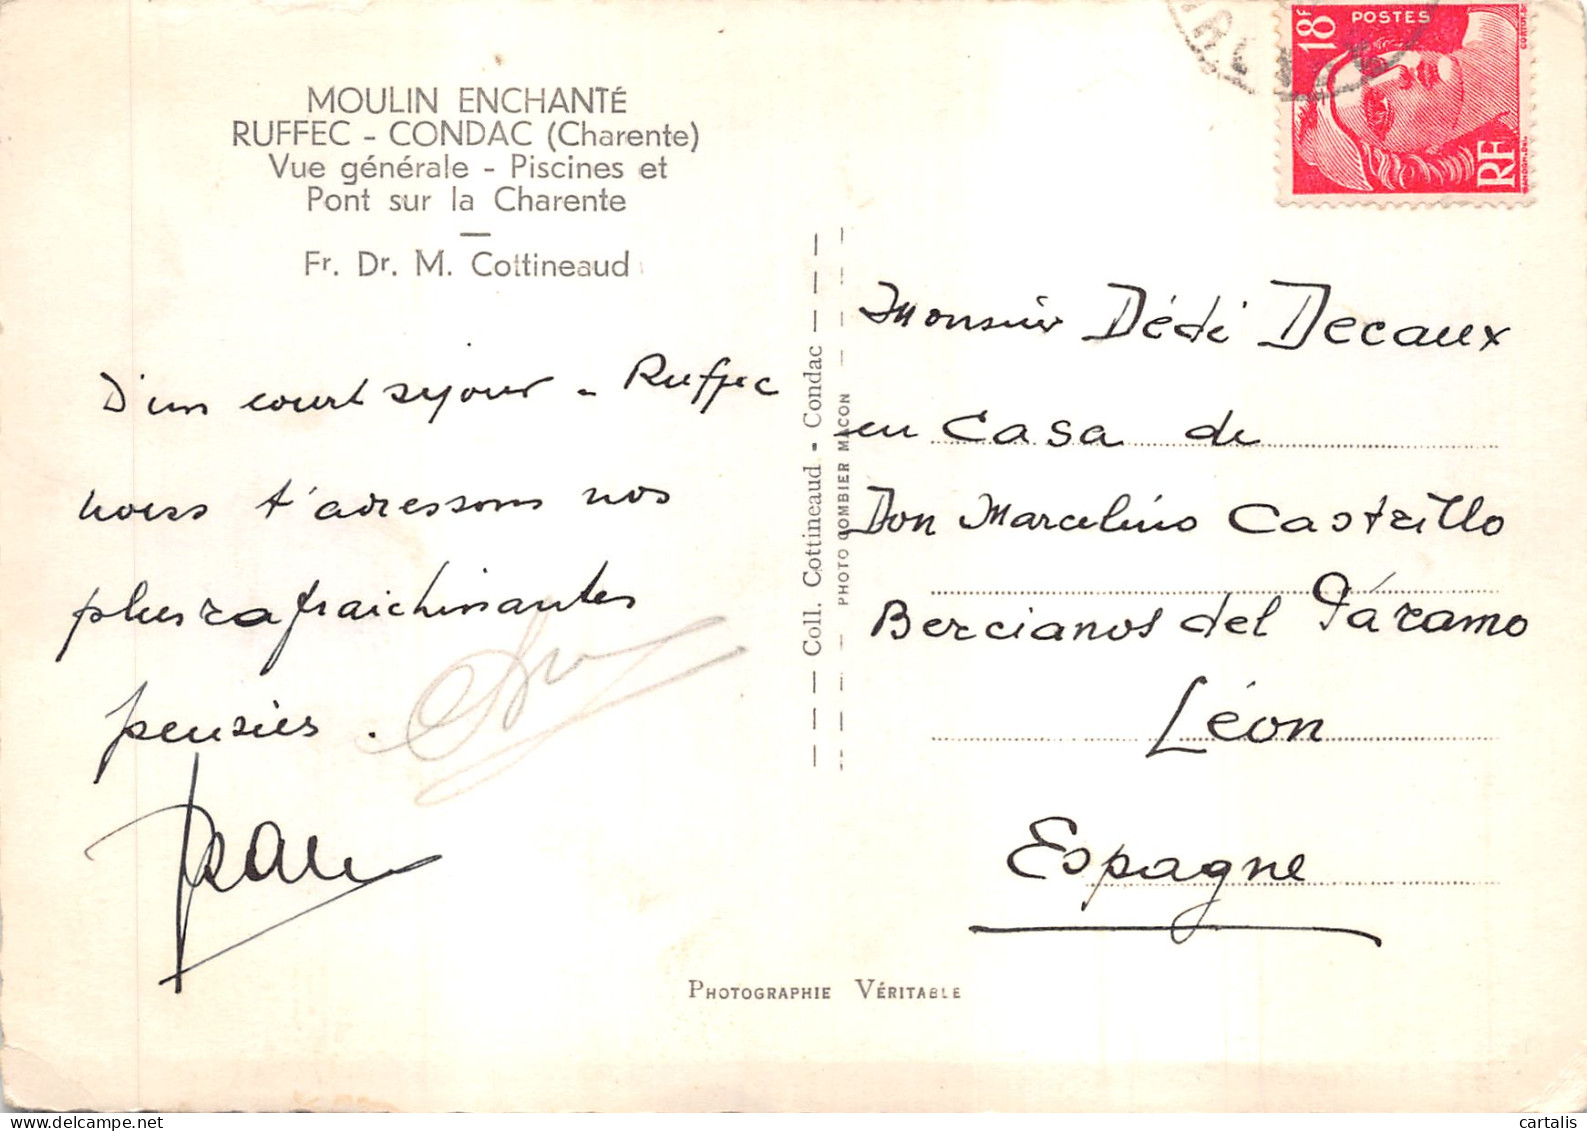 MOULIN ENCHANTÉ
RUFFEC - CONDAC (Charente)
Vue générale - Piscines et
Pont sur la Charente
Fr. Dr. M. Cottineaud
D'un court séjour - Ruffec
nous t'adressons nos
plus rafraichissantes
pensées.
Coll. Cottineaud - Condac
PHOTO COMBIER MACON
18F
POSTES
RF
Monsieur Dédé Decaux
en Casa de
Don Marcelino Castrillo
Bercianos del Páramo
Léon
Espagne
PHOTOGRAPHIE VÉRITABLE
cartalis